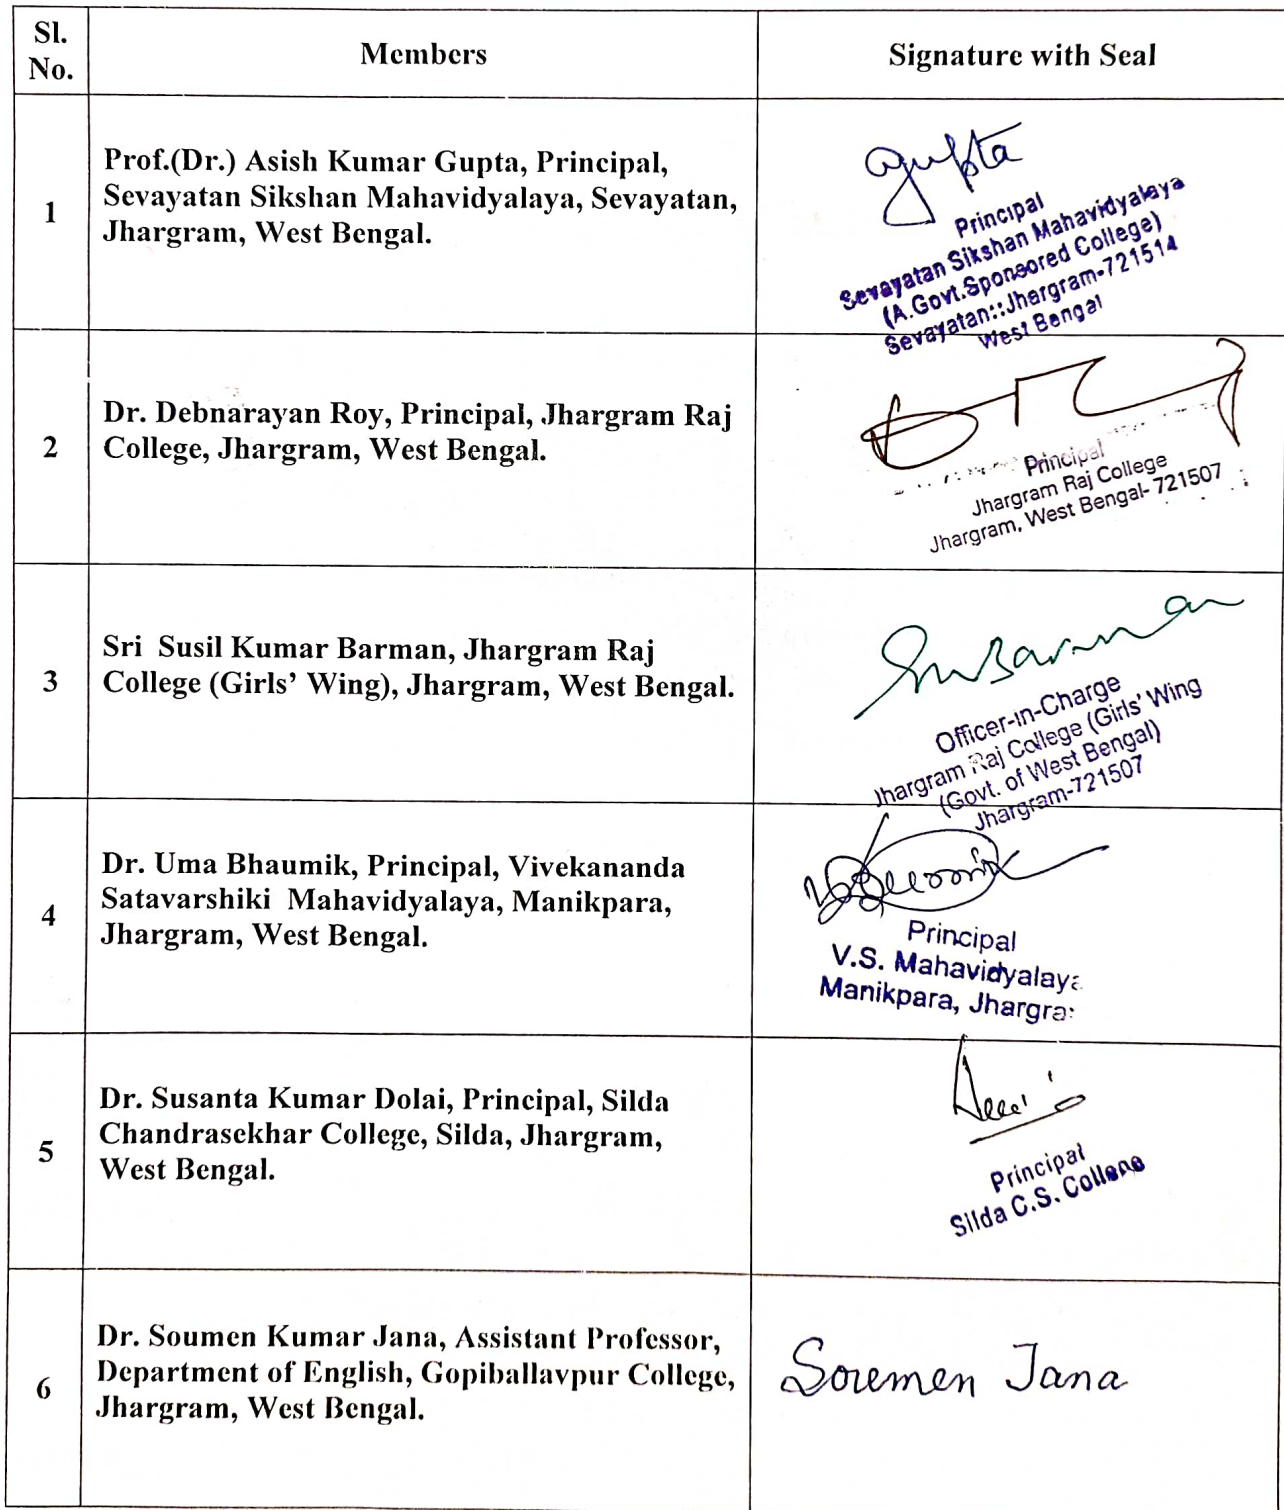 Sl.
No.
Members
Signature with Seal
1
Prof.(Dr.) Asish Kumar Gupta, Principal,
Sevayatan Sikshan Mahavidyalaya, Sevayatan,
Jhargram, West Bengal.
Gupta
Principal
Sevayatan Sikshan Mahavidyalaya
(A.Govt.Sponsored College)
Sevayatan::Jhargram-721514
West Bengal
2
Dr. Debnarayan Roy, Principal, Jhargram Raj
College, Jhargram, West Bengal.
Principal
Jhargram Raj College
Jhargram, West Bengal- 721507
3
Sri Susil Kumar Barman, Jhargram Raj
College (Girls' Wing), Jhargram, West Bengal.
Barman
Officer-in-Charge
Jhargram Raj College (Girls' Wing
(Govt. of West Bengal)
Jhargram-721507
4
Dr. Uma Bhaumik, Principal, Vivekananda
Satavarshiki Mahavidyalaya, Manikpara,
Jhargram, West Bengal.
Principal
V.S. Mahavidyalaya
Manikpara, Jhargra
5
Dr. Susanta Kumar Dolai, Principal, Silda
Chandrasekhar College, Silda, Jhargram,
West Bengal.
Principal
Silda C.S. College
6
Dr. Soumen Kumar Jana, Assistant Professor,
Department of English, Gopiballavpur College,
Jhargram, West Bengal.
Soumen Jana